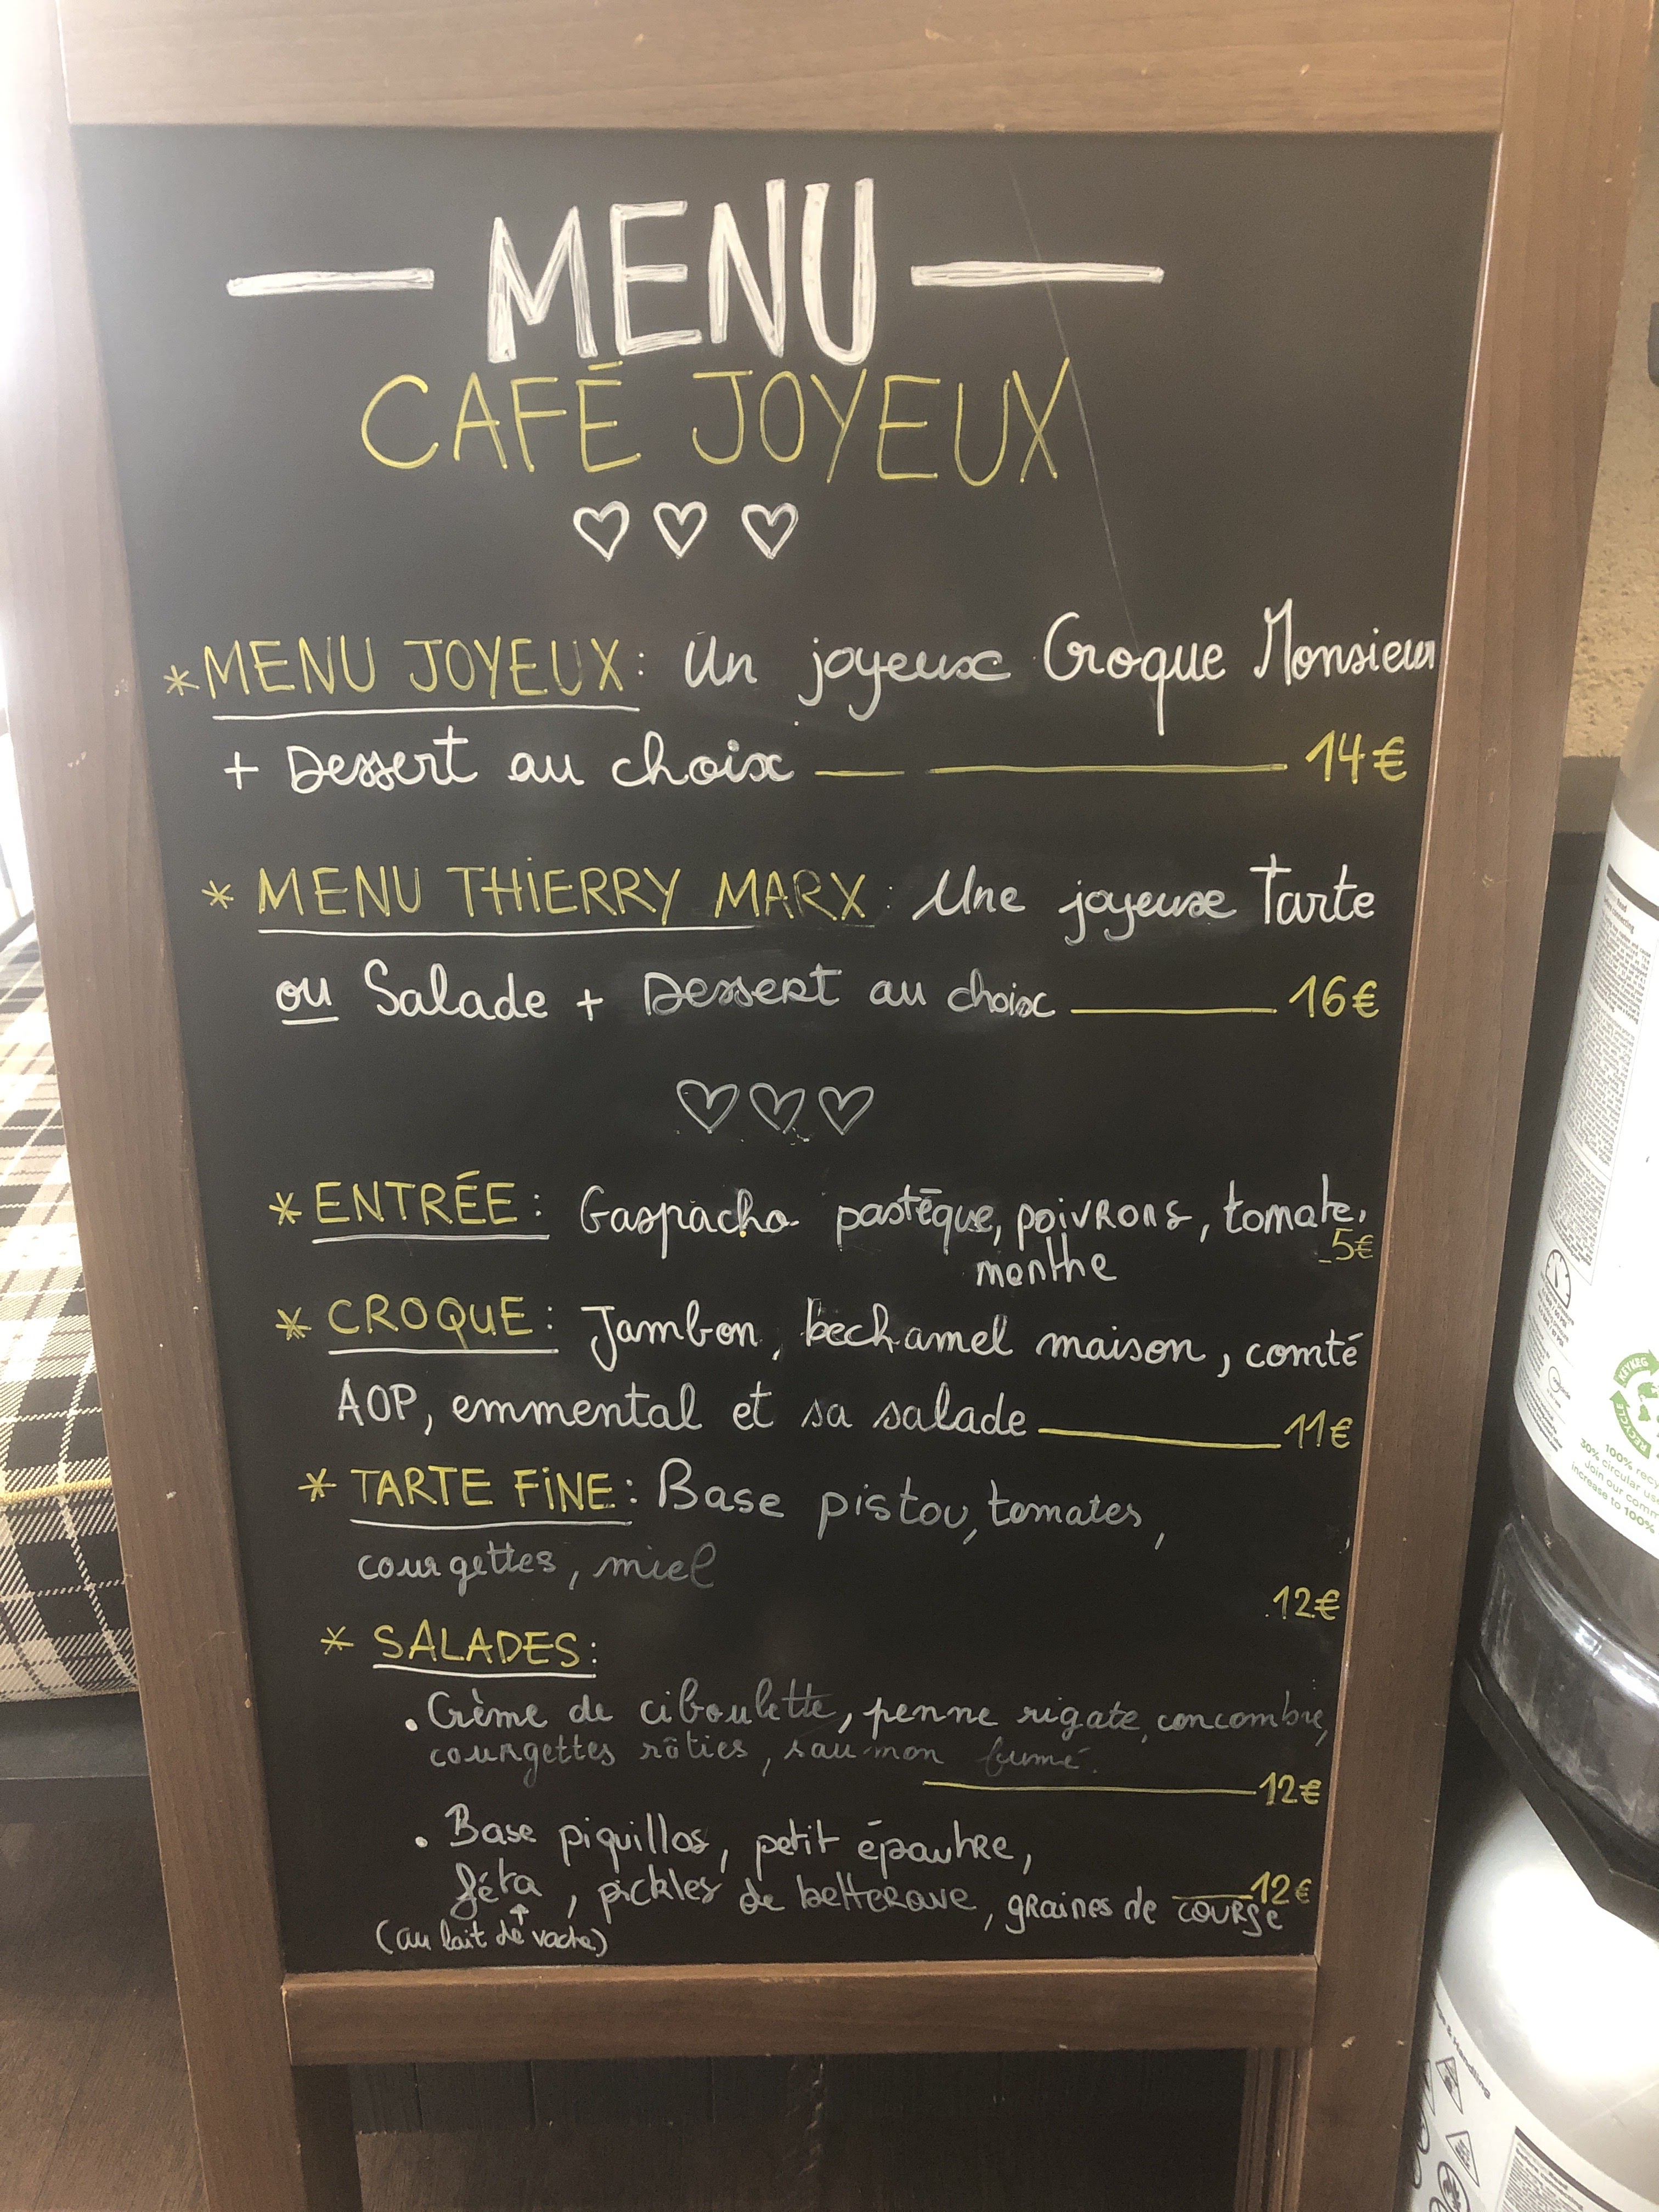 MENU
CAFÉ JOYEUX
* MENU JOYEUX : Un joyeux Croque Monsieur
+ Dessert au choix 14€
* MENU THiERRY MARX : Une joyeuse Tarte
ou Salade + Dessert au choix 16€
* ENTRÉE : Gaspacho pastèque, poivrons, tomate,
menthe 5€
* CROQUE : Jambon, bechamel maison, comté
AOP, emmental et sa salade 11€
* TARTE FiNE : Base pistou, tomates,
courgettes, miel
12€
* SALADES :
• Crème de ciboulette, penne rigate, concombre,
courgettes rôties, saumon fumé.
12€
• Base piquillos, petit épautre,
féta, pickles de betterave, graines de courge 12€
(au lait de vache)
100% recy
30% circular use
Join our comm
increase to 100%